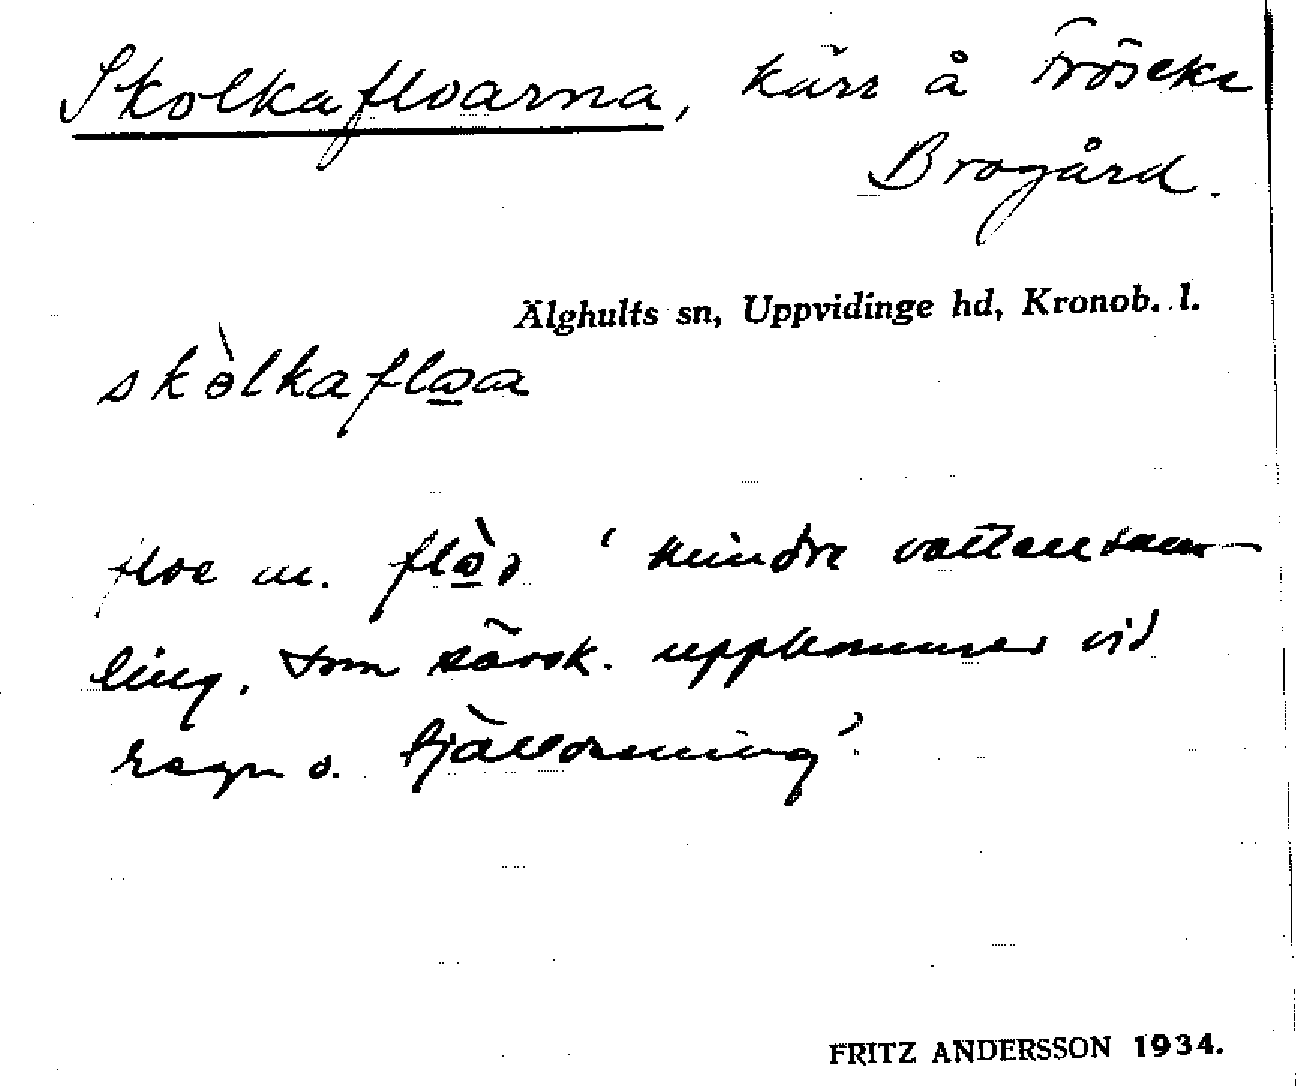 Skolkafloarna, kärr å Fröseke
Brogård.
Älghults sn, Uppvidinge hd, Kronob. l.
skòlkafloa
floe m. 'mindre vattensam-
ling, som särsk. uppkommer vid
regn o. tjällossning'.
FRITZ ANDERSSON 1934.